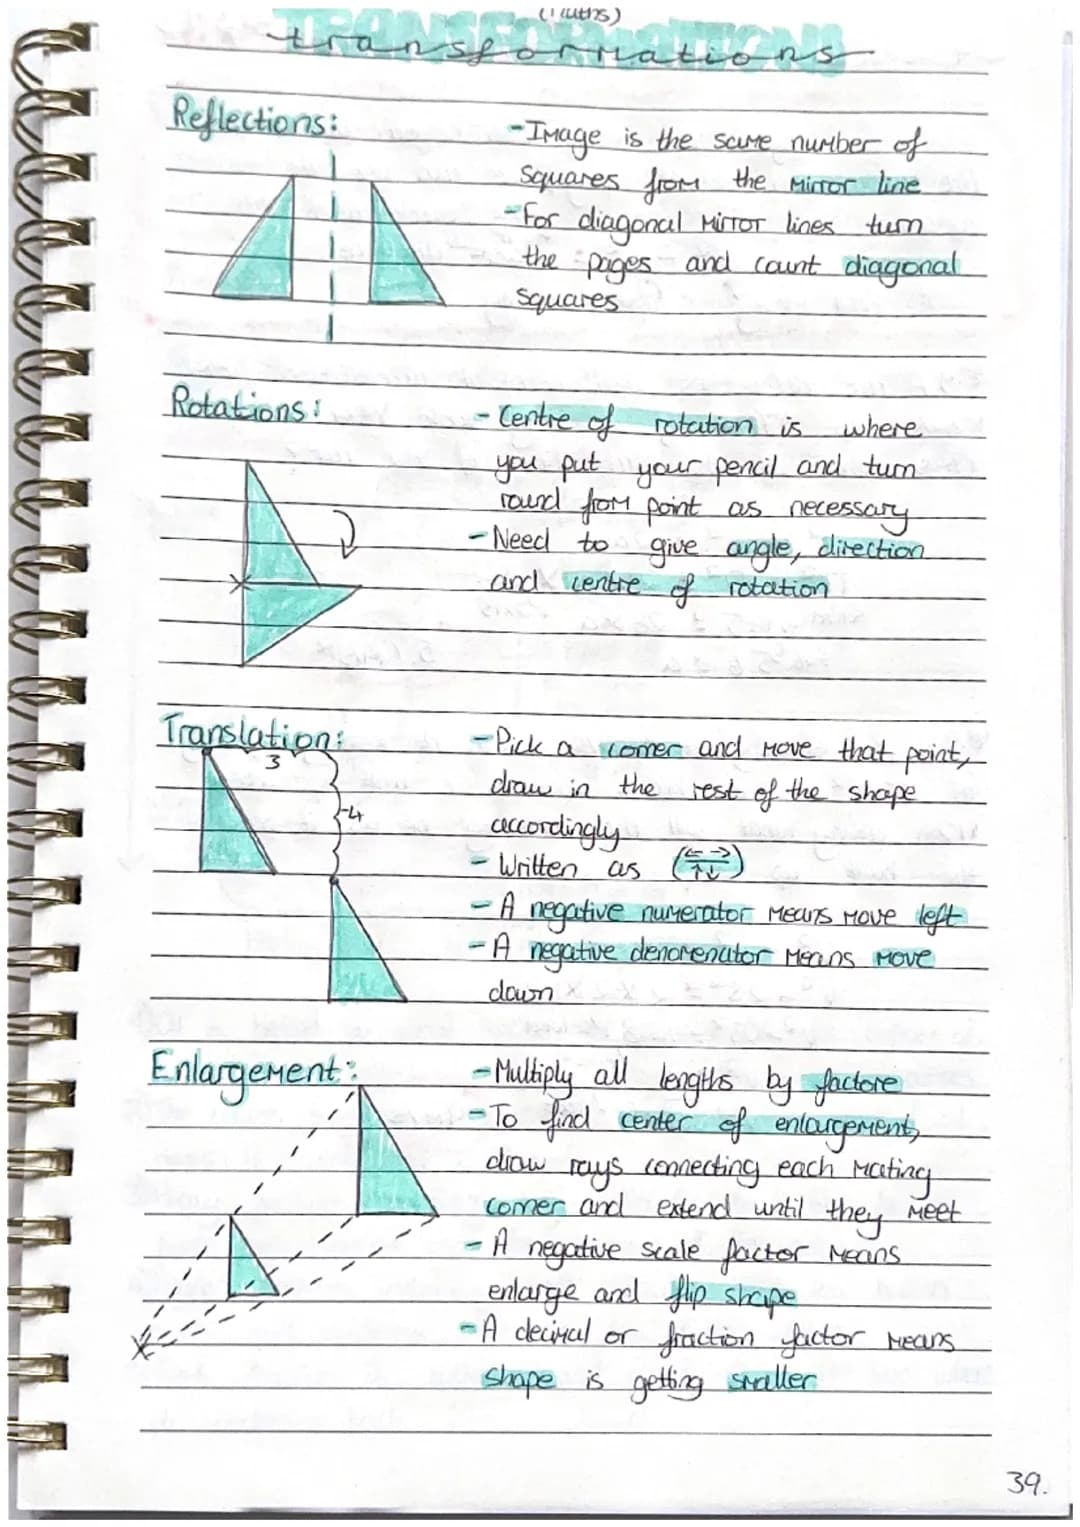 (Maths)
TRANSFORMATIONS
transformations
Reflections:
- Image is the same number of
squares from the mirror line
- For diagonal mirror lines turn
the pages and count diagonal
squares
Rotations:
- Centre of rotation is where
you put your pencil and turn
round from point as necessary
- Need to give angle, direction
and centre of rotation
Translation:
3
-4
- Pick a corner and move that point,
draw in the rest of the shape
accordingly
- Written as (←→/↑↓)
- A negative numerator means move left
- A negative denomenator means move
down
Enlargement:
- Multiply all lengths by factore
- To find center of enlargement,
draw rays connecting each mating
corner and extend until they meet
- A negative scale factor means
enlarge and flip shape
- A decimal or fraction factor means
shape is getting smaller
39.